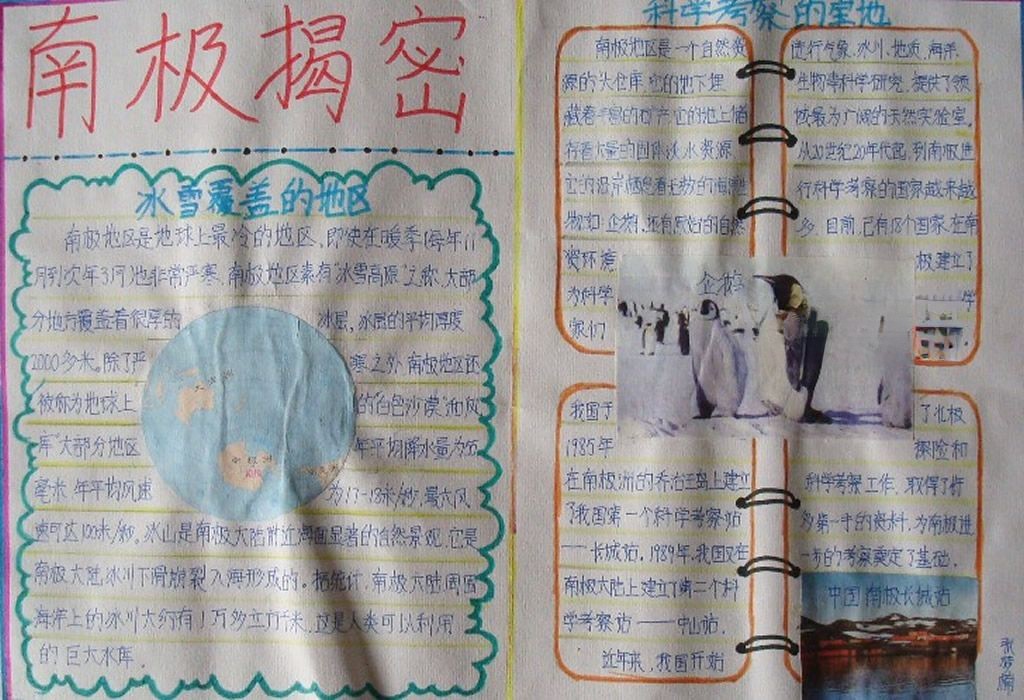 南极揭密
冰雪覆盖的地区
南极地区是地球上最冷的地区，即使在暖季(每年11
月到次年3月)也非常严寒。南极地区素有"冰雪高原"之称，大部
分地方覆盖着很厚的冰层，冰层的平均厚度
2000多米。除了严寒之外南极地区还
被称为地球上的"白色沙漠"和"风
库"大部分地区年平均降水量为55
毫米，年平均风速为17-18米/秒，最大风
速可达100米/秒。冰山是南极大陆附近海面显著的自然景观，它是
南极大陆冰川下滑崩裂入海形成的。据统计，南极大陆周围
海洋上的冰川大约有1万多立方千米，这是人类可以利用
的巨大水库。
南极洲
科学考察的宝地
南极地区是一个自然资
源的大仓库，它的地下埋
藏着丰富的矿产，它的地上储
存着大量的固体淡水资源
它的沿岸栖息着无数的海洋生
物如：企鹅，还有原始的自然
资环境
为科学
家们
进行气象、冰川、地质、海洋、
生物等科学研究，提供了领
域最为广阔的天然实验室。
从20世纪20年代起，到南极进
行科学考察的国家越来越
多，目前，已有18个国家在南
极建立了
学
企鹅
我国于
1985年
在南极洲的乔治王岛上建立
了我国第一个科学考察站
——长城站。1989年，我国又在
南极大陆上建立了第二个科
学考察站——中山站。
近年来，我国开始
了北极
探险和
科学考察工作，取得了许
多第一手的资料，为南极进
一步的考察奠定了基础。
中国南极长城站